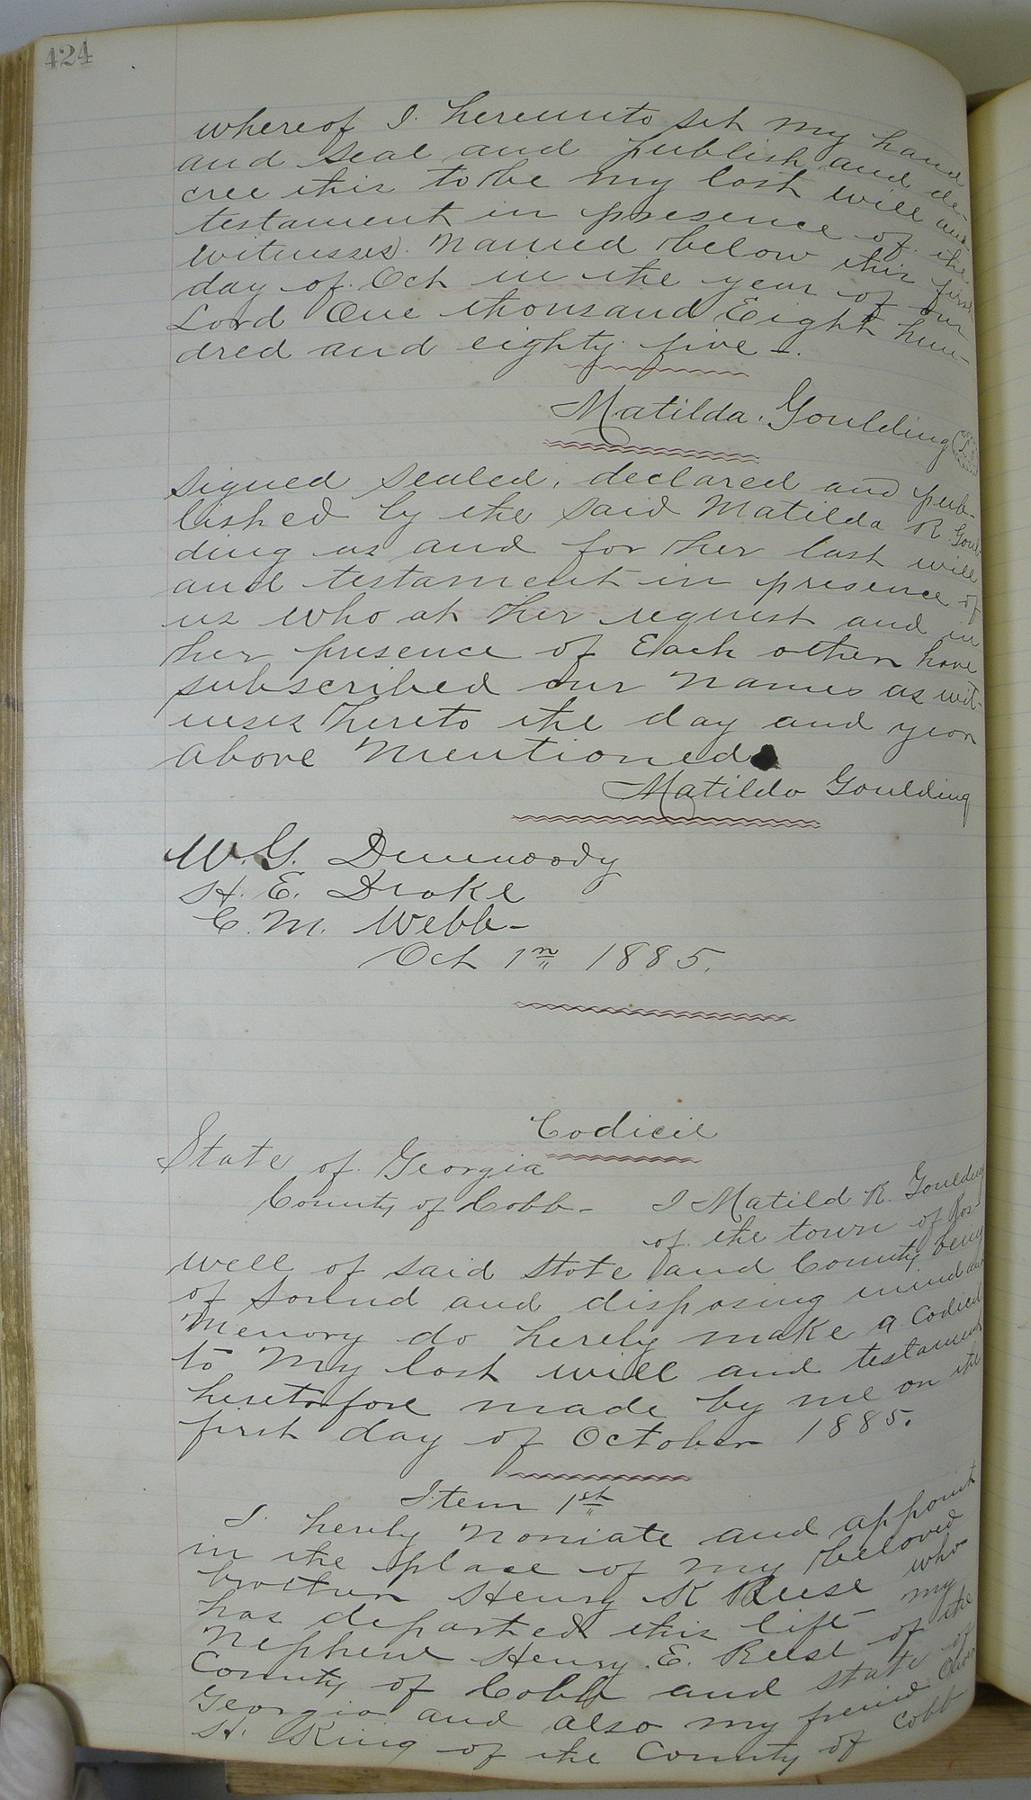 424
whereof I hereunto set my hand
and seal and publish and de-
cree this to be my last will and
testament in presence of the
witnesses named below this first
day of Oct in the year of our
Lord One thousand Eight hun-
dred and eighty five -.
Matilda. Goulding (L.S.)
signed sealed, declared and pub-
lished by the said Matilda R. Goul-
ding as and for her last will
and testament in presence of
us who at her request and in
her presence of Each other have
subscribed our names as wit-
neses hereto the day and year
above mentioned.
Matilda Goulding
W. G. Dunwoody
H. E. Drake
C. M. Webb -
Oct 1st 1885.
Codicil
State of Georgia
County of Cobb - I Matild R. Goulding
of the town of Ros-
well of said State and County being
of sound and disposing mind and
Memory do hereby make a codicil
to my last will and testament
heretofore made by me on the
first day of October 1885.
Item 1st
I hereby noniate and appoint
in the place of my beloved
brother Henry K Reese who
has departed this life my
Nephew Henry. E. Reese of the
County of Cobb and state of
Georgia and also my freind
H. King of the County of Cobb